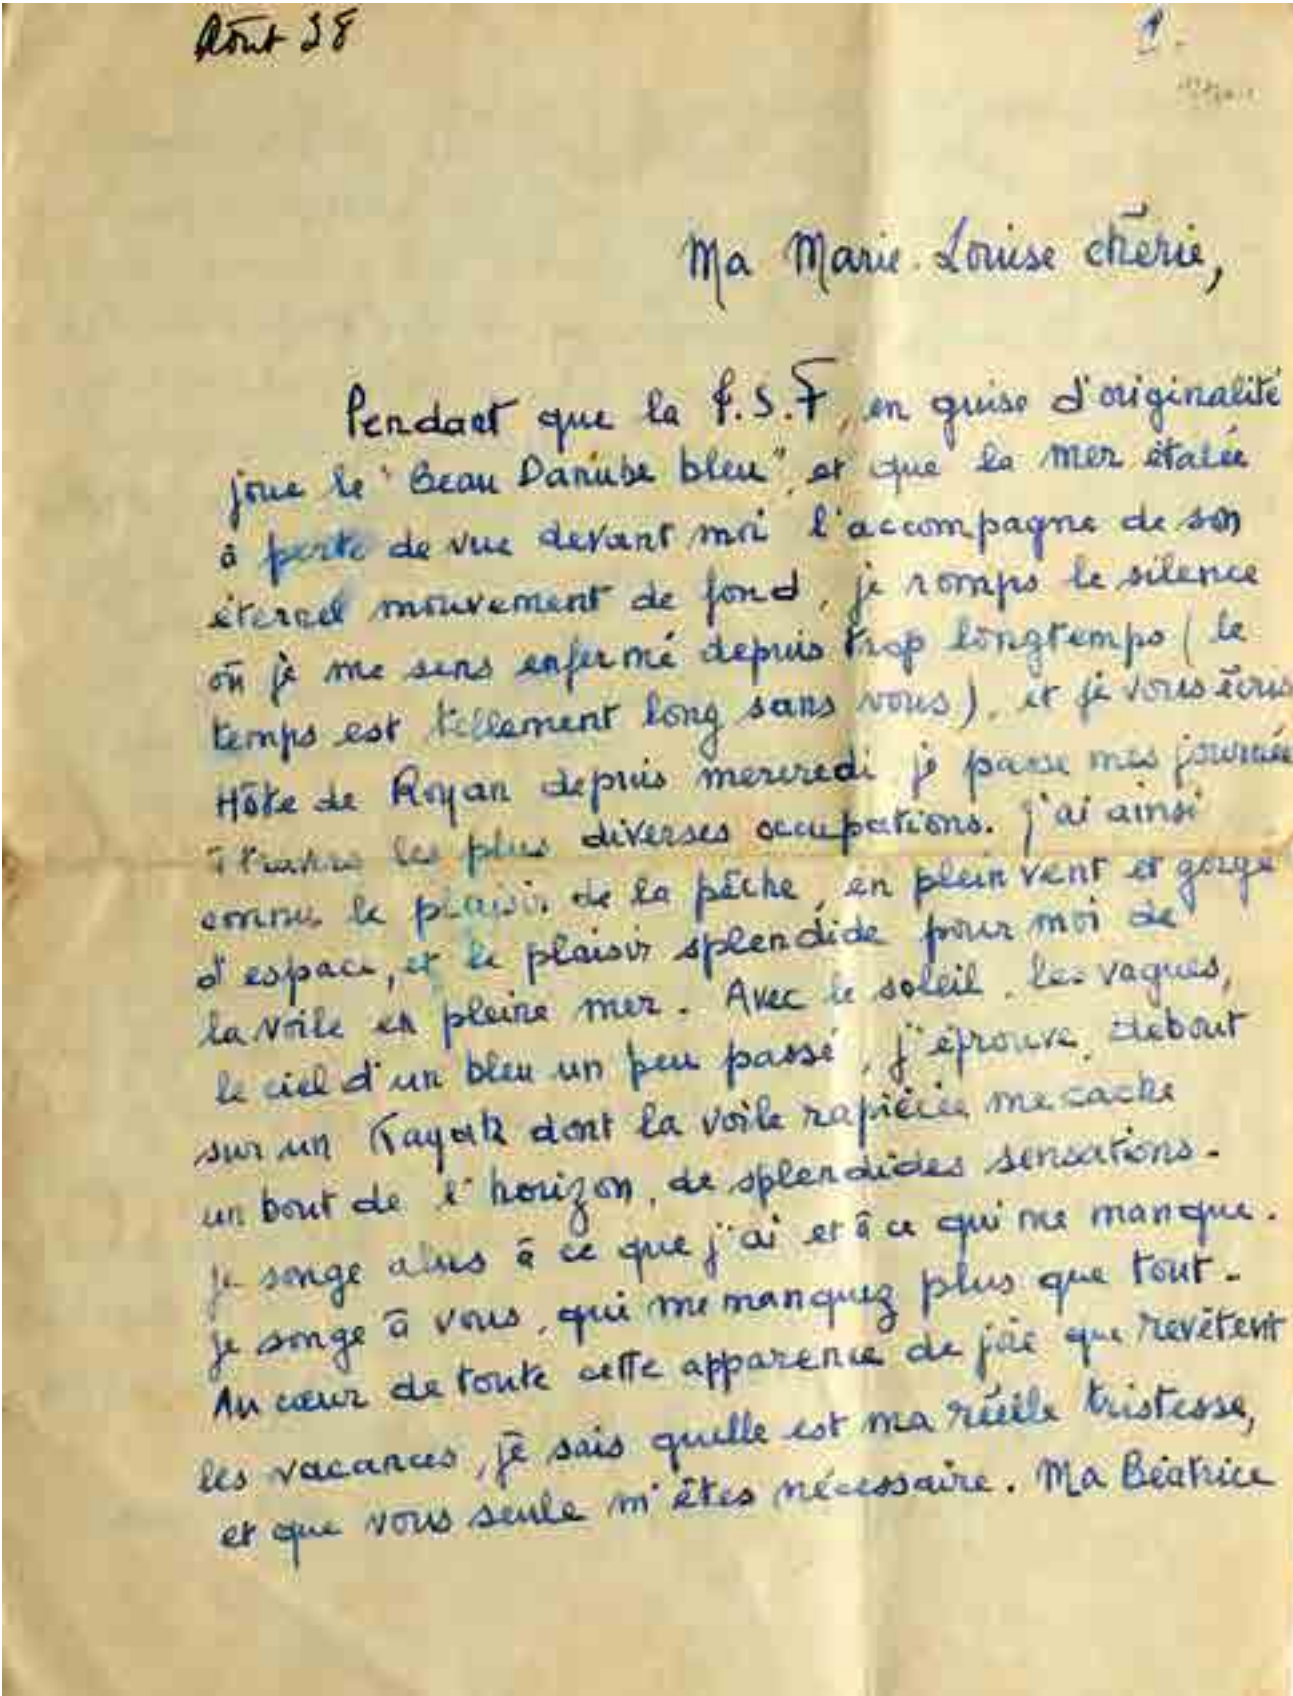 Août 38
1.
Ma Marie-Louise chérie,
Pendant que la T.S.F, en guise d'originalité
joue le "Beau Danube bleu", et que la mer étalée
à perte de vue devant moi l'accompagne de son
éternel mouvement de fond, je romps le silence
où je me sens enfermé depuis trop longtemps (le
temps est tellement long sans vous), et je vous écris
Hôte de Royan depuis mercredi je passe mes journée
à travers les plus diverses occupations. j'ai ainsi
connu le plaisir de la pêche, en plein vent et gorgé
d'espace, et le plaisir splendide pour moi de
la voile en pleine mer. Avec le soleil, les vagues,
le ciel d'un bleu un peu passé, j'éprouve, debout
sur un Kayak dont la voile rapiécée me cache
un bout de l'horizon, de splendides sensations.
je songe alors à ce que j'ai et à ce qui me manque.
je songe à vous, qui me manquez plus que tout.
Au cœur de toute cette apparence de joie que revêtent
les vacances, je sais quelle est ma réelle tristesse,
et que vous seule m'êtes nécessaire. Ma Béatrice